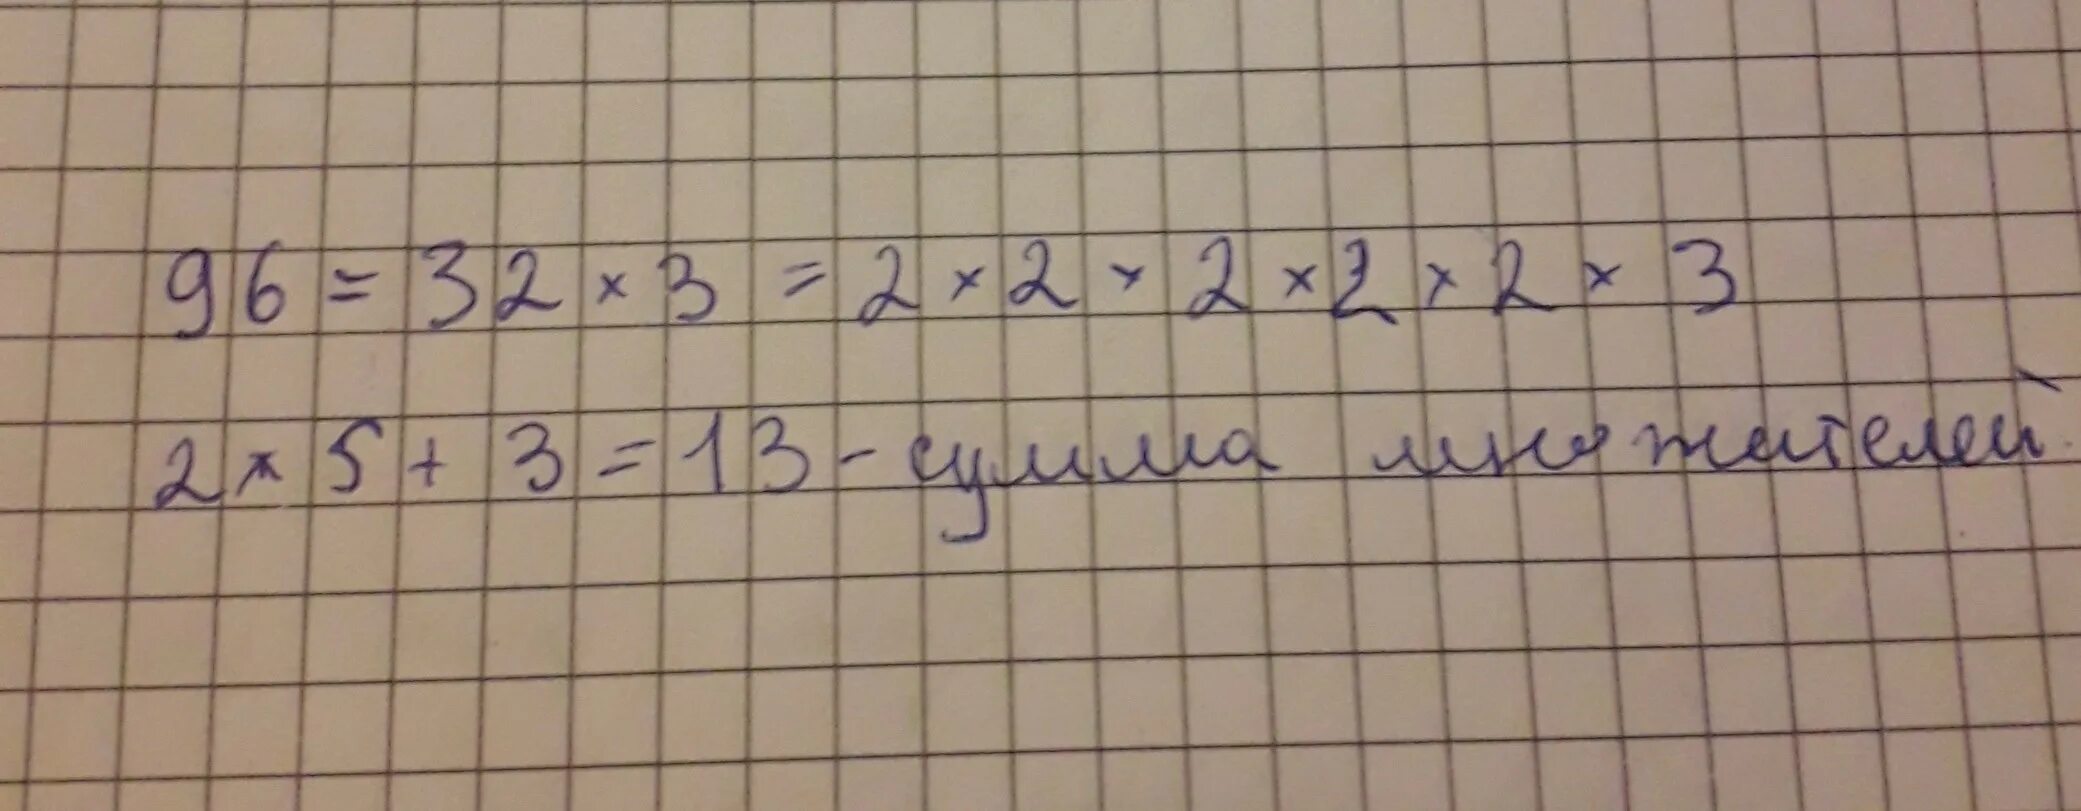 96 = 32 × 3 = 2 × 2 × 2 × 2 × 2 × 3
2 × 5 + 3 = 13 - сумма множителей.